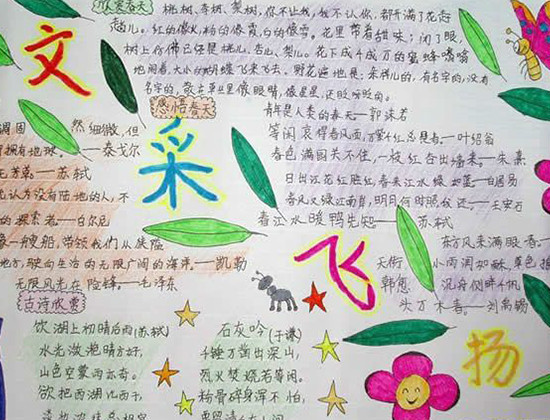 欣赏春天
桃树、杏树、梨树,你不让我,我不让你,都开满了花赶
趟儿。红的像火,粉的像霞,白的像雪。花里带着甜味;闭了眼,
树上仿佛已经是桃儿、杏儿、梨儿。花下成千成万的蜜蜂嗡嗡
地闹着,大小的蝴蝶飞来飞去。野花遍地是:杂样儿的,有名字的,没有
名字的,散在草丛里像眼睛,像星星,还眨呀眨的。
文
采
飞
扬
感悟春天
然细微,但
拥有地球。——泰戈尔
苏轼
认为没有陆地的人,不
的探索者。——白尔尼
一艘船,带领我们从狭隘
地方,驶向生活的无限广阔的海洋。——凯勒
无限风光在险峰。——毛泽东
青年是人类的春天——郭沫若
等闲识得春风面,万紫千红总是春。——叶绍翁
春色满园关不住,一枝红杏出墙来。——朱熹
日出江花红胜火,春来江水绿如蓝。——白居易
春风又绿江南岸,明月何时照我还。——王安石
春江水暖鸭先知。——苏轼
东方风来满眼春。
天街小雨润如酥,草色
韩愈
沉舟侧畔千帆
头万木春。——刘禹锡
古诗欣赏
饮湖上初晴后雨(苏轼)
水光潋滟晴方好,
山色空蒙雨亦奇。
欲把西湖比西子,
石灰吟(于谦)
千锤万凿出深山,
烈火焚烧若等闲。
粉骨碎身浑不怕,